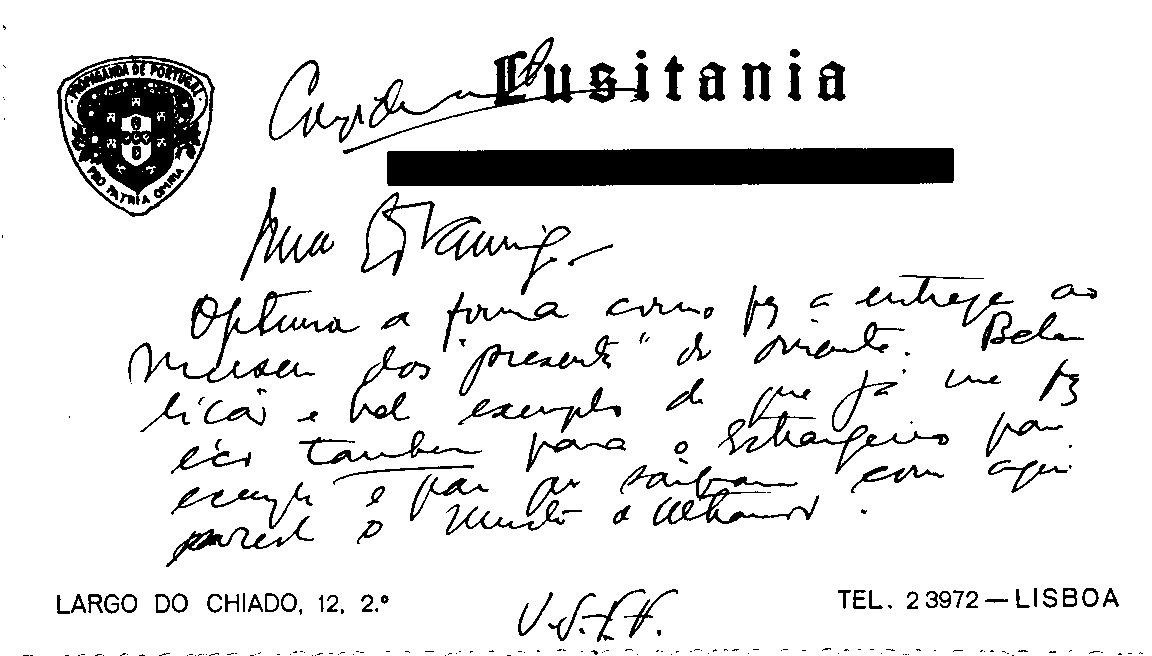 PROPAGANDA DE PORTUGAL
PRO PATRIA OMNIA
Lusitania
Optima a forma como fez a entrega ao
Museu dos "presentes" do oriente. Bela
lição e bel exemplo de que já me fiz
éco também para o Estrangeiro para
exemplo e para que saibam com quem
o Mundo
LARGO DO CHIADO, 12, 2.º
V.S.F.F.
TEL. 23972 — LISBOA